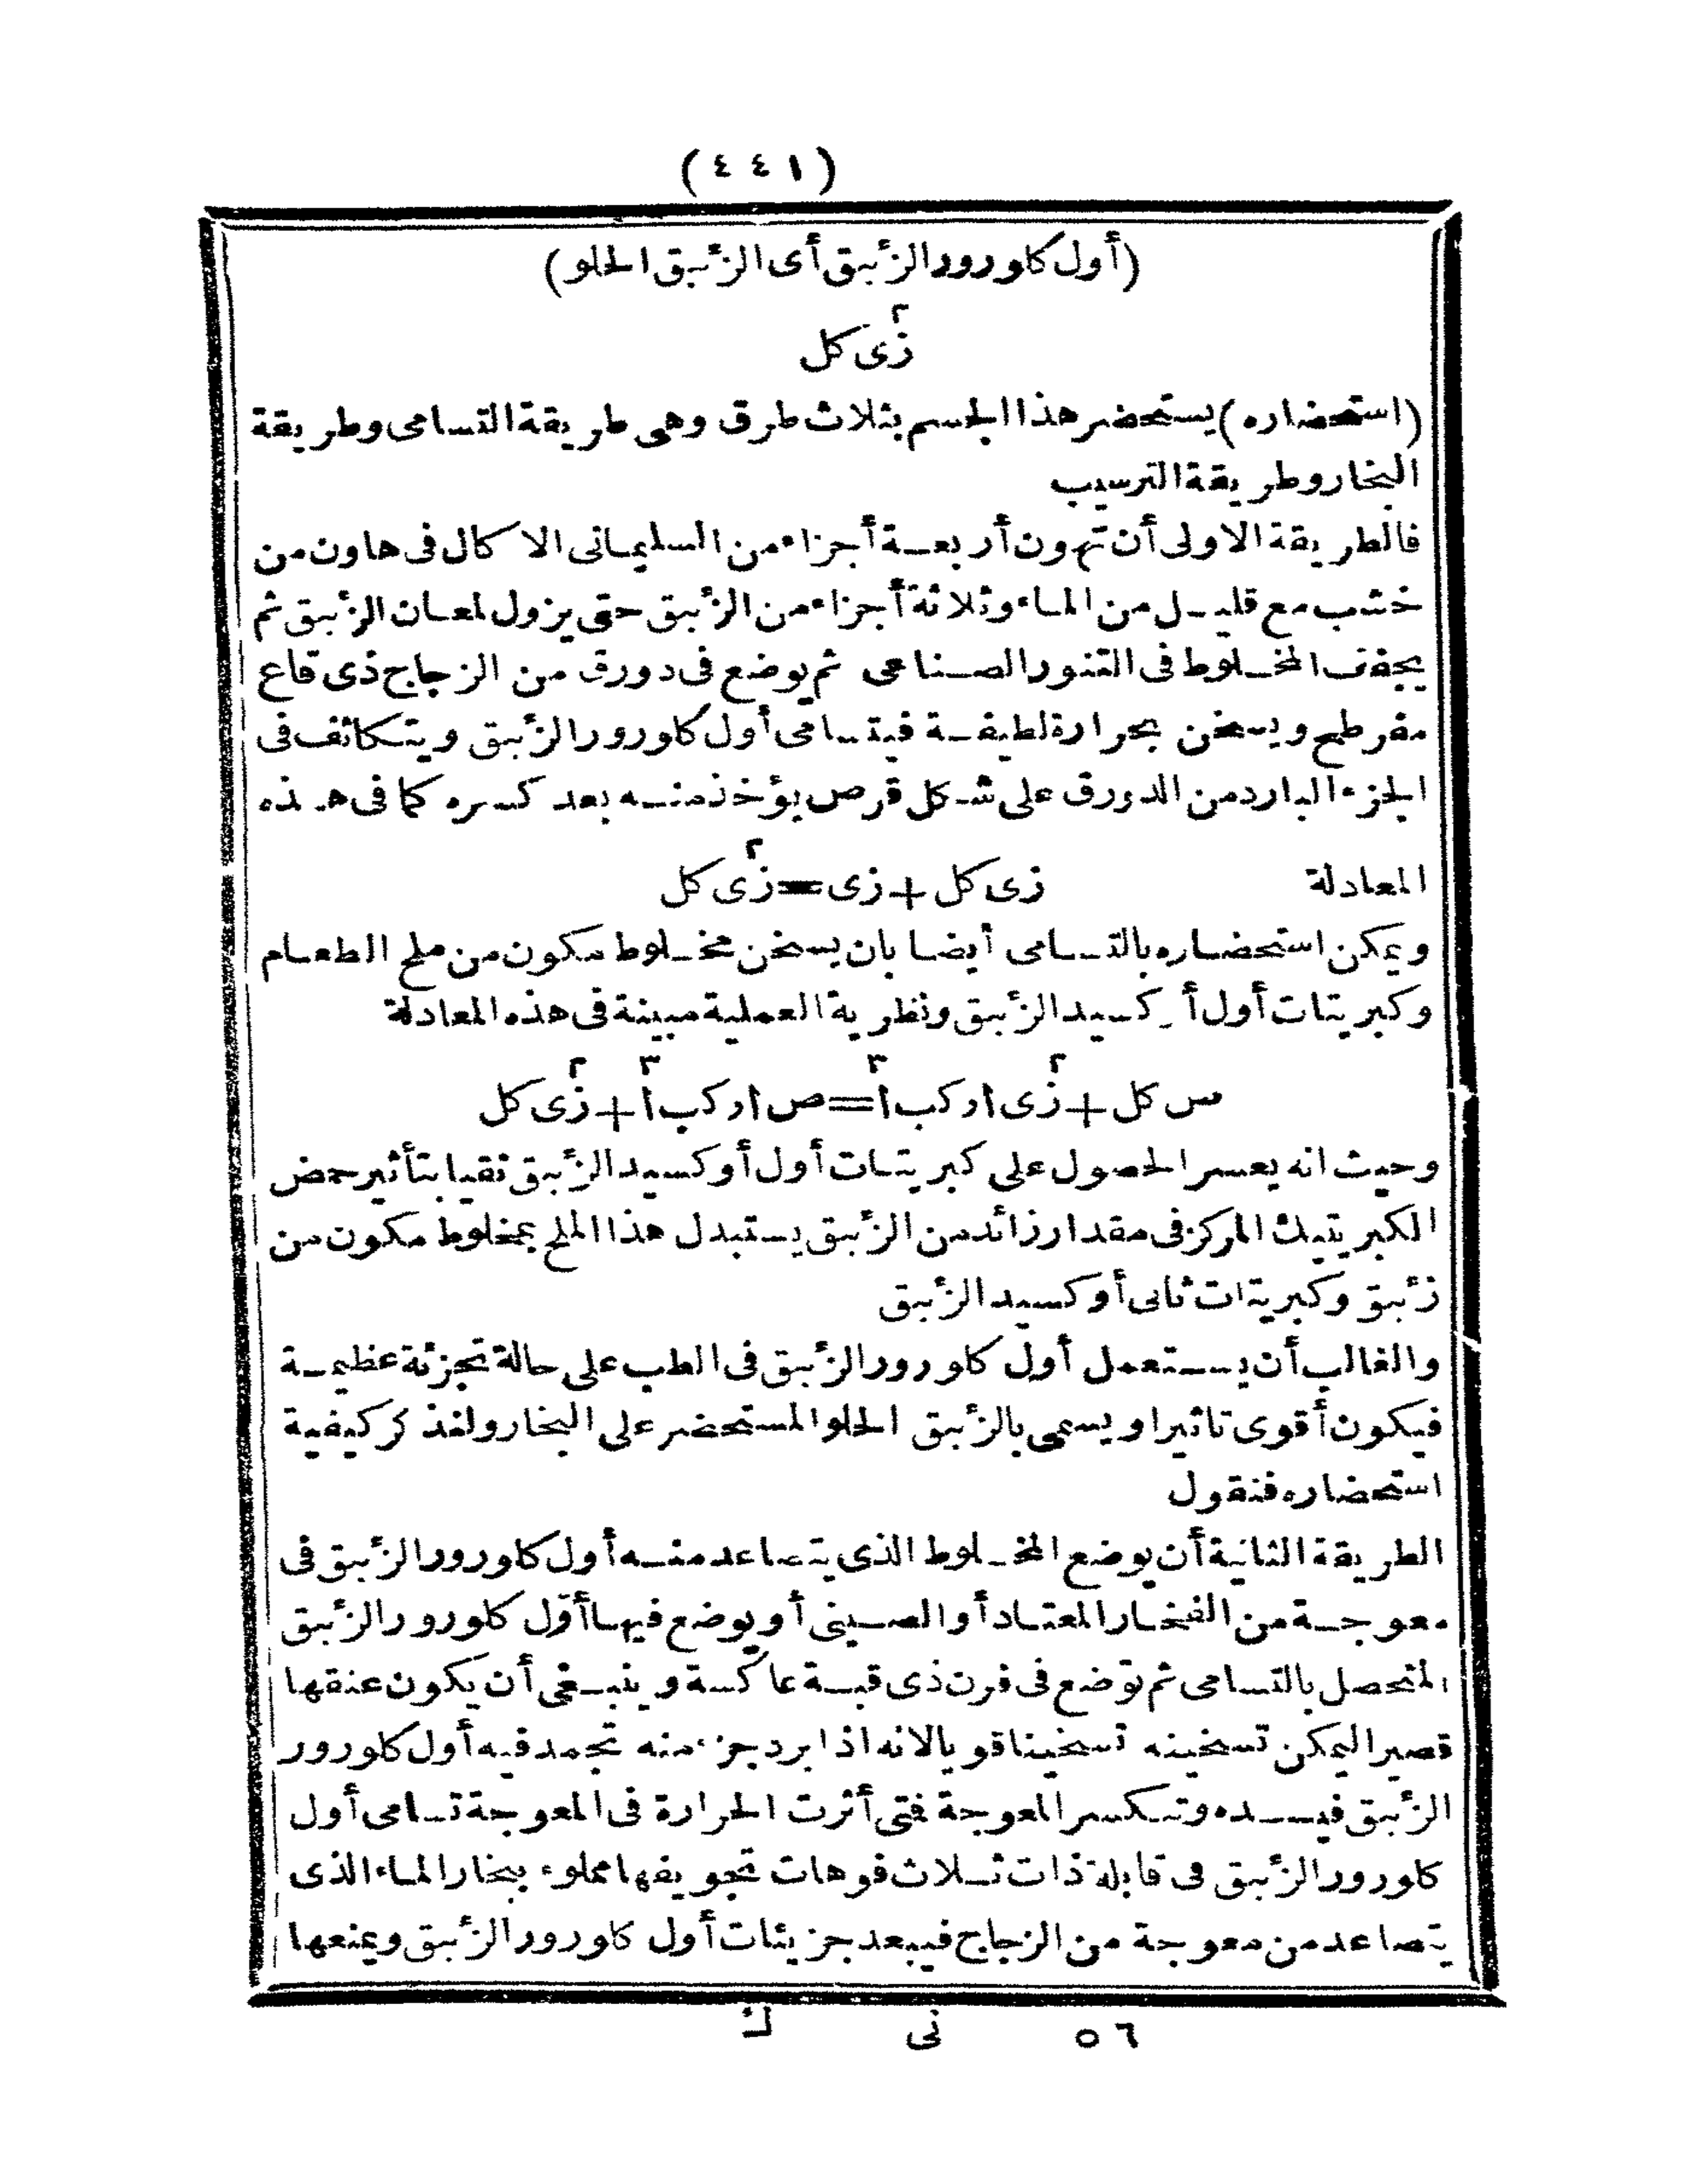 (٤٤١)
(أول كلورور الزئبق أى الزئبق الحلو)
٢
زى كل
(استحضاره) يستحضر هذا الجسم بثلاث طرق وهى طريقة التسامى وطريقة
البخار وطريقة الترسيب
فالطريقة الاولى أن تهون أربعة أجزاء من السليمانى الاكال فى هاون من
خشب مع قليل من الماء وثلاثة أجزاء من الزئبق حتى يزول لمعان الزئبق ثم
يجفف المخلوط فى التنور الصناعى ثم يوضع فى دورق من الزجاج ذى قاع
مفرطح ويسخن بحرارة لطيفة فيتسامى أول كلورور الزئبق ويتكاثف فى
الجزء البارد من الدورق على شكل قرص يؤخذ منه بعد كسره كما فى هذه
٢
المعادلة زى كل + زى = زى كل
ويمكن استحضاره بالتسامى أيضا بان يسخن مخلوط مكون من ملح الطعام
وكبريتات أول أكسيد الزئبق ونظرية العملية مبينة فى هذه المعادلة
٢ ٣ ٣ ٢
س كل + زى ا ر كب ا = ص ا ر كب ا + زى كل
وحيث انه يعسر الحصول على كبريتات أول أوكسيد الزئبق نقيا بتأثير حمض
الكبريتيك المركز فى مقدار زائد من الزئبق يستبدل هذا الملح بمخلوط مكون من
زئبق وكبريتات ثانى أوكسيد الزئبق
والغالب أن يستعمل أول كلورور الزئبق فى الطب على حالة تجزئة عظيمة
فيكون أقوى تاثيرا ويسمى بالزئبق الحلو المستحضر على البخار ولنذكر كيفية
استحضاره فنقول
الطريقة الثانية أن يوضع المخلوط الذى يتصاعد منه أول كلورور الزئبق فى
معوجة من الفخار المعتاد أو الصينى أو يوضع فيها أوّل كلورور الزئبق
المتحصل بالتسامى ثم توضع فى فرن ذى قبة عاكسة وينبغى أن يكون عنقها
قصيرا ليمكن تسخينه تسخينا قويا لانه اذا برد جزء منه تجمد فيه أول كلورور
الزئبق فيسده وتنكسر المعوجة فتى أثرت الحرارة فى المعوجة تسامى أول
كلورور الزئبق فى قابلة ذات ثلاث فوهات تجويفها مملوء ببخار الماء الذى
يتصاعد من معوجة من الزجاج فيبعد جزيئات أول كلورور الزئبق ويمنعها
٥٦ نى ك